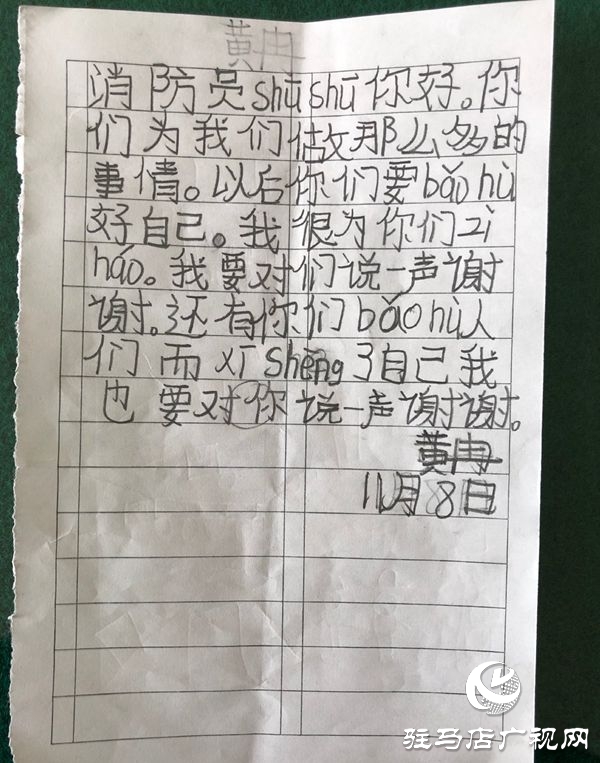 黄冉
消防员shū shū你好。你
们为我们做那么多的
事情。以后你们要bǎo hù
好自己。我很为你们zì
háo。我要对们说一声谢
谢。还有你们bǎo hù人
们而xī shēng了自己我
也要对你说一声谢谢。
黄冉
11月8日
驻马店广视网